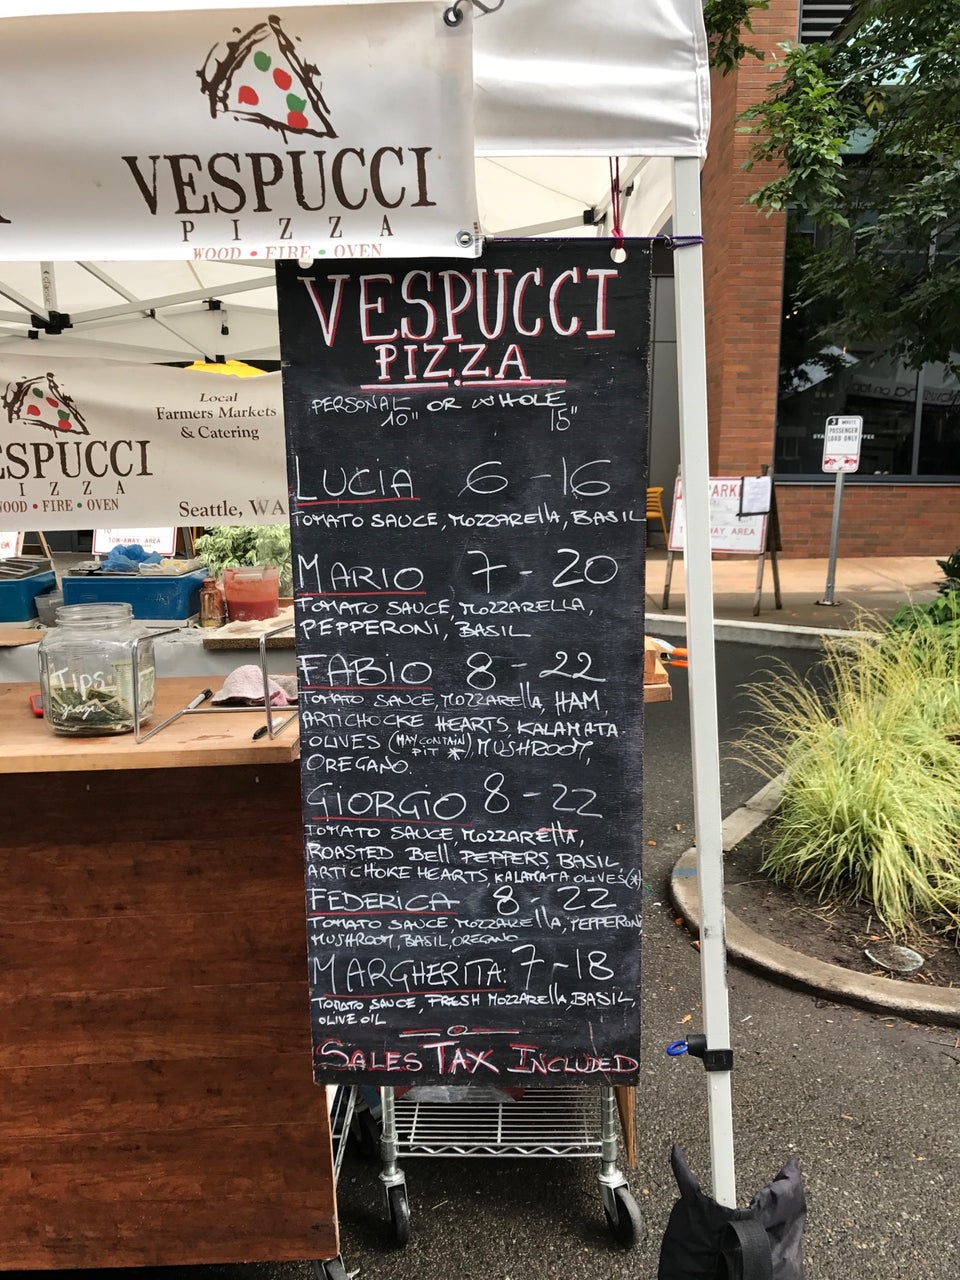 VESPUCCI
PIZZA
WOOD • FIRE • OVEN
VESPUCCI
PIZZA
PERSONAL OR WHOLE
10" 15"
LUCIA 6 - 16
TOMATO SAUCE, MOZZARELLA, BASIL
MARIO 7 - 20
TOMATO SAUCE, MOZZARELLA,
PEPPERONI, BASIL
FABIO 8 - 22
TOMATO SAUCE, MOZZARELLA, HAM,
ARTICHOCKE HEARTS KALAMATA
OLIVES (MAY CONTAIN PIT *) MUSHROOM,
OREGANO.
GIORGIO 8 - 22
TOMATO SAUCE, MOZZARELLA,
ROASTED BELL PEPPERS, BASIL,
ARTICHOKE HEARTS, KALAMATA OLIVES (*)
FEDERICA 8 - 22
TOMATO SAUCE, MOZZARELLA, PEPPERONI
MUSHROOM, BASIL, OREGANO
MARGHERITA: 7 - 18
TOMATO SAUCE, FRESH MOZZARELLA, BASIL,
OLIVE OIL
SALES TAX INCLUDED
Local
Farmers Markets
& Catering
ESPUCCI
IZZA
WOOD • FIRE • OVEN
Seattle, WA
TOW-AWAY AREA
TIPS
grazie
3 MINUTE
PASSENGER
LOAD ONLY
MARK
TOW-AWAY AREA